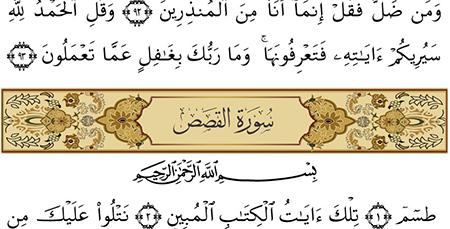 وَمَن ضَلَّ فَقُلْ إِنَّمَآ أَنَا۠ مِنَ ٱلْمُنذِرِينَ ﴿٩٢﴾ وَقُلِ ٱلْحَمْدُ لِلَّهِ
سَيُرِيكُمْ ءَايَـٰتِهِۦ فَتَعْرِفُونَهَا ۚ وَمَا رَبُّكَ بِغَـٰفِلٍ عَمَّا تَعْمَلُونَ ﴿٩٣﴾
سُورَةُ القَصَصِ
بِسْمِ ٱللَّهِ ٱلرَّحْمَـٰنِ ٱلرَّحِيمِ
طسٓمٓ ﴿١﴾ تِلْكَ ءَايَـٰتُ ٱلْكِتَـٰبِ ٱلْمُبِينِ ﴿٢﴾ نَتْلُوا۟ عَلَيْكَ مِن